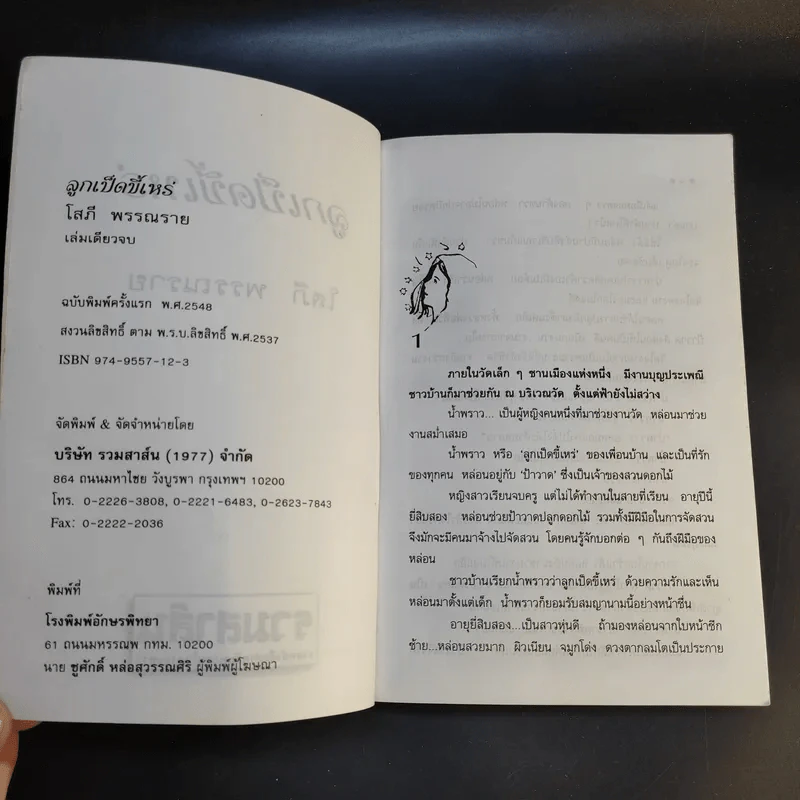 ลูกเป็ดขี้เหร่
โสภี พรรณราย
เล่มเดียวจบ
ฉบับพิมพ์ครั้งแรก พ.ศ.2548
สงวนลิขสิทธิ์ ตาม พ.ร.บ.ลิขสิทธิ์ พ.ศ.2537
ISBN 974-9557-12-3
จัดพิมพ์ & จัดจำหน่ายโดย
บริษัท รวมสาส์น (1977) จำกัด
864 ถนนมหาไชย วังบูรพา กรุงเทพฯ 10200
โทร. 0-2226-3808, 0-2221-6483, 0-2623-7843
Fax: 0-2222-2036
พิมพ์ที่
โรงพิมพ์อักษรพิทยา
61 ถนนมหรรณพ กทม. 10200
นาย ชูศักดิ์ หล่อสุวรรณศิริ ผู้พิมพ์ผู้โฆษณา
1
ภายในวัดเล็ก ๆ ชานเมืองแห่งหนึ่ง มีงานบุญประเพณี
ชาวบ้านก็มาช่วยกัน ณ บริเวณวัด ตั้งแต่ฟ้ายังไม่สว่าง
น้ำพราว... เป็นผู้หญิงคนหนึ่งที่มาช่วยงานวัด หล่อนมาช่วย
งานสม่ำเสมอ
น้ำพราว หรือ 'ลูกเป็ดขี้เหร่' ของเพื่อนบ้าน และเป็นที่รัก
ของทุกคน หล่อนอยู่กับ 'ป้าวาด' ซึ่งเป็นเจ้าของสวนดอกไม้
หญิงสาวเรียนจบครู แต่ไม่ได้ทำงานในสายที่เรียน อายุปีนี้
ยี่สิบสอง หล่อนช่วยป้าวาดปลูกดอกไม้ รวมทั้งมีฝีมือในการจัดสวน
จึงมักจะมีคนมาจ้างไปจัดสวน โดยคนรู้จักบอกต่อ ๆ กันถึงฝีมือของ
หล่อน
ชาวบ้านเรียกน้ำพราวว่าลูกเป็ดขี้เหร่ ด้วยความรักและเห็น
หล่อนมาตั้งแต่เด็ก น้ำพราวก็ยอมรับสมญานามนี้อย่างหน้าชื่น
อายุยี่สิบสอง...เป็นสาวหุ่นดี ถ้ามองหล่อนจากใบหน้าซีก
ซ้าย...หล่อนสวยมาก ผิวเนียน จมูกโด่ง ดวงตากลมโตเป็นประกาย